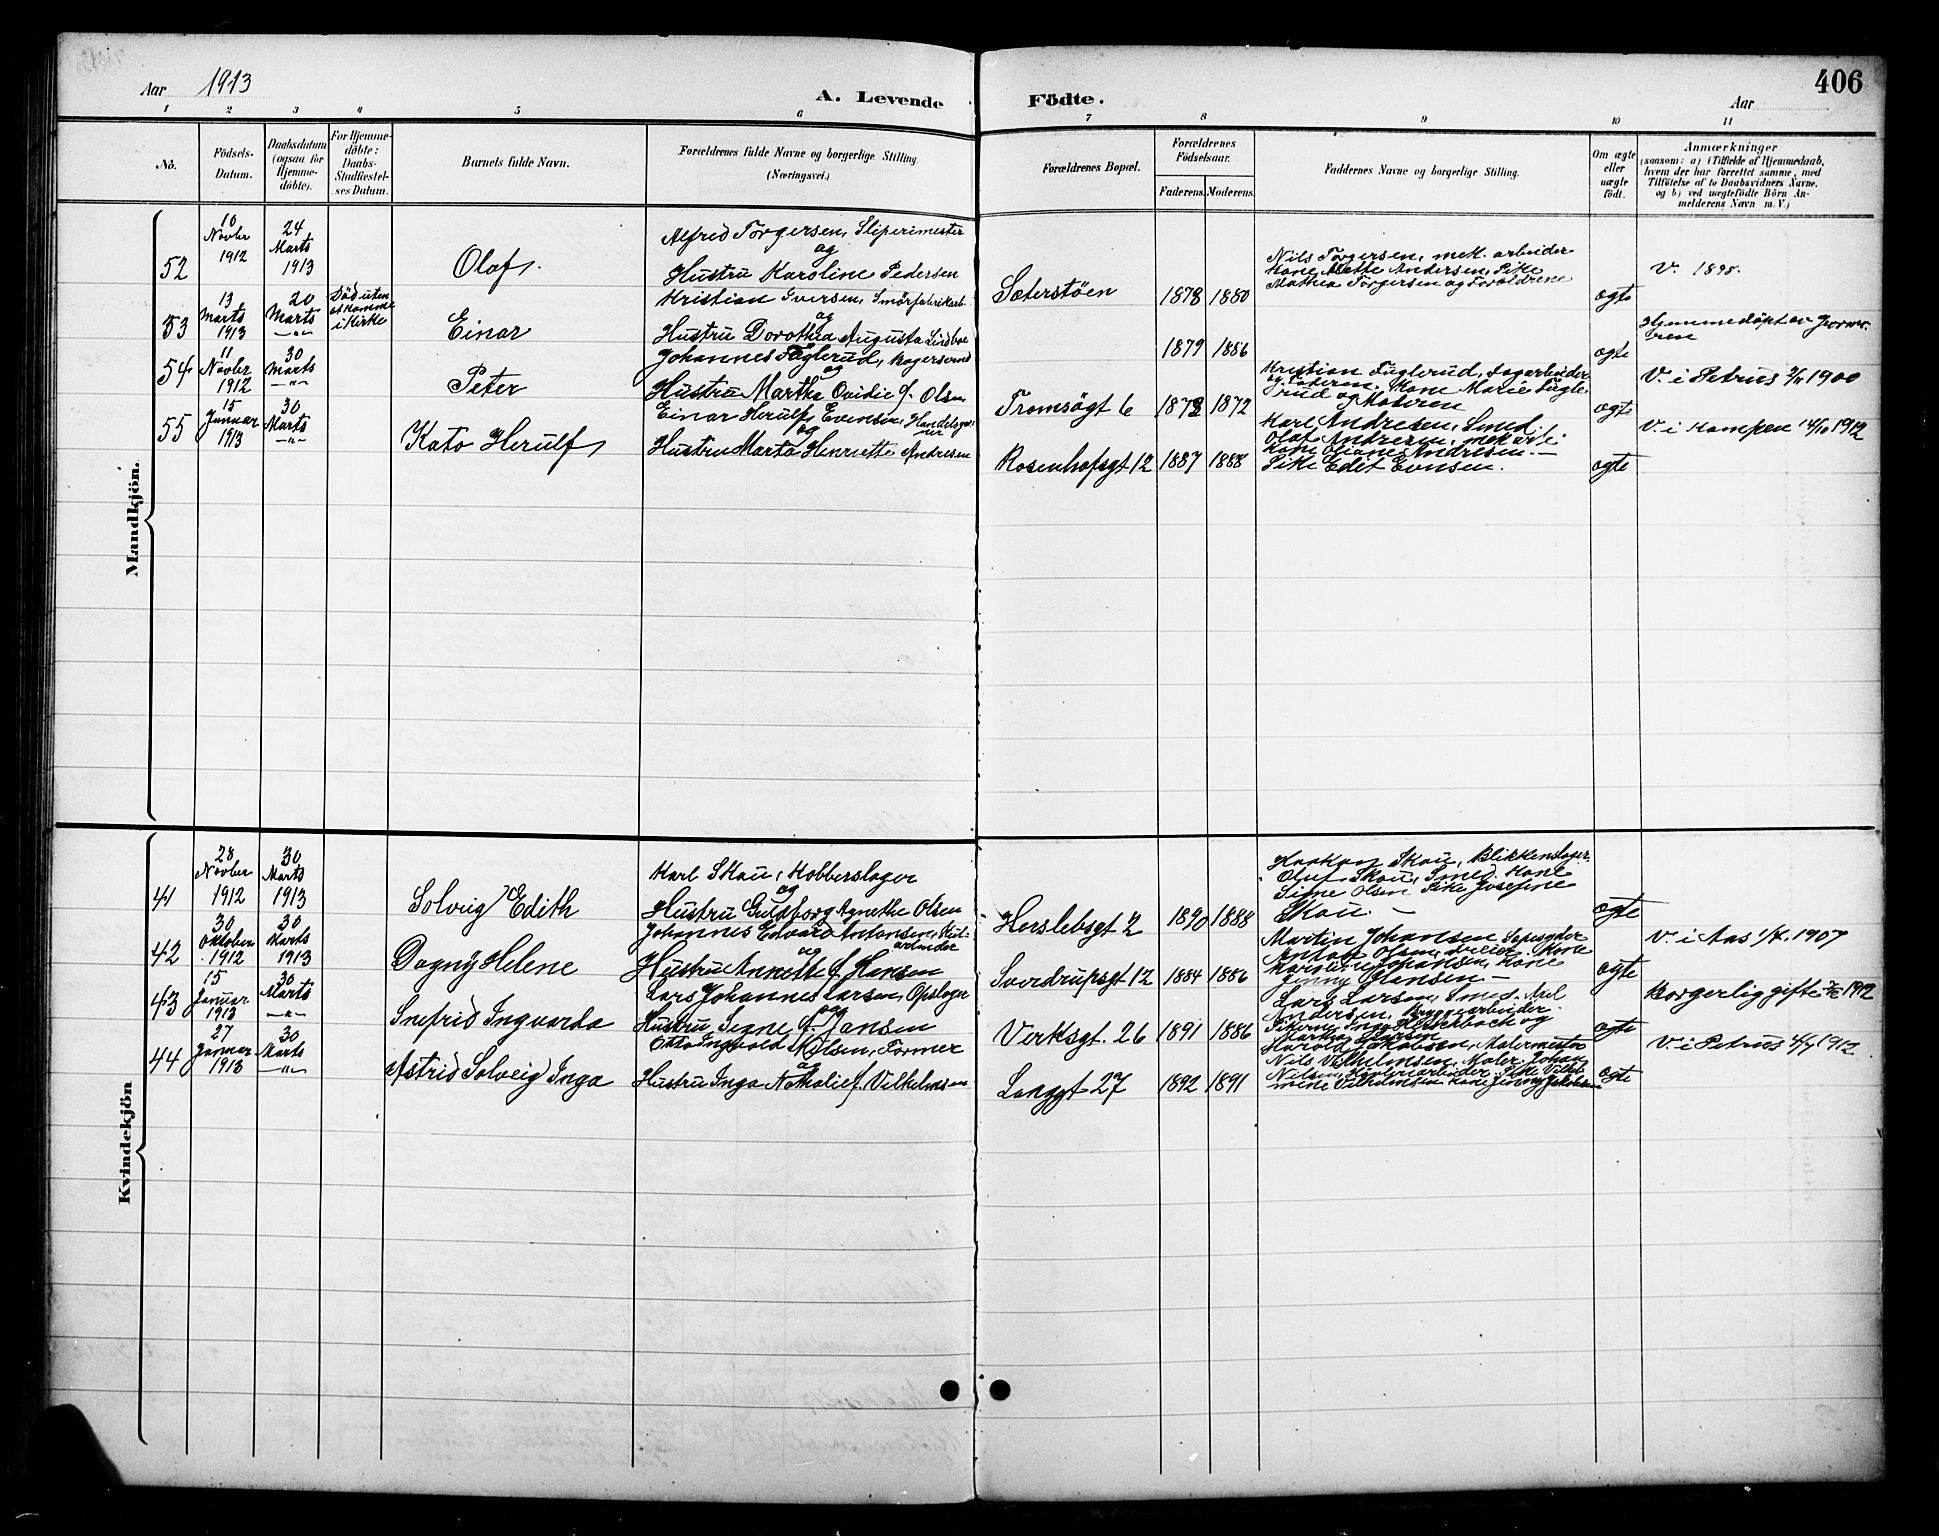 406
Aar 1913
A. Levende Födte.
Aar
1 2 3 4 5 6 7 8 9 10 11
No.
Födsels-
Datum.
Daabsdatum
(ogsaa for
Hjemme-
döbte).
For Hjemme-
döbte:
Daabs-
Stadfæstel-
ses Datum.
Barnets fulde Navn.
Forældrenes fulde Navne og borgerlige Stilling.
(Næringsvei.)
Forældrenes Bopæl.
Forældrenes
Födselsaar.
Faderens. Moderens.
Faddernes Navne og borgerlige Stilling.
Om ægte
eller
uægte
födt.
Anmærkninger
(saasom: a) i Tilfælde af Hjemmedaab,
hvem der har forrettet samme, med
Tilföielse af to Daabsvidners Navne,
og b) ved uægtefödte Börn An-
melderens Navn m. V.)
Mandkjön.
52
10
Novbr
1912
24
Marts
1913
Olaf.
Alfred Torgersen, Sliperimester
og
Hustru Karoline Pedersen
Sæterstöen
1878 1880
Nils Torgersen, mek. arbeider
Kone Mette Andersen, Pike
Mathea Torgersen og Foreldrene
ægte
V. 1898.
53
13
Marts
1913
20
Marts
-"-
Död uten
at komme
i Kirke
Einar
Kristian Iversen, Smörfabrikarb.
og
Hustru Dorothea Augusta Lindboe
1879 1886
ægte
Hjemmedöpt av Jormo-
deren
54
11
Novbr
1912
30
Marts
-"-
Peter
Johannes Fuglerud, Bagersvend
og
Hustru Martha Ovidie f. Olsen
Tromsögt 6
1873 1872
Kristian Fuglerud, Lagerbeider
og Faderen. Kone Marie Fugle-
rud og Moderen
ægte
V. i Petrus 1900
55
15
Januar
1913
30
Marts
-"-
Kato Herulf
Einar Herulf Evensen, Handelsgar-
ner
og
Hustru Marta Henriette Andresen
Rosenhofsgt 12
1887 1888
Karl Andresen, Smed.
Olaf Andresen, mek arb.
Kone Oliane Andresen. -
Pike Edit Evnsen.
ægte
V. i Kampen 14/10 1912
Kvindekjön
41
28
Novber
1912
30
Marts
1913
Solveig Edith
Karl Skau, Kobberslager
og
Hustru Guldborg Agnethe Olsen
Herslebsgt 2
1890 1888
Haakon Skau, Blikkenslager.
Oluf Skau, Smed. Kone
Signe Olsen Pike Josefine
Skau. -
ægte
42
30
Oktober
1912
30
Marts
1913
Dagny Helene
Johannes Edvard Antonsen,
arbeider
og
Hustru Annette f. Hansen
Sverdrupsgt 12
1884 1886
Martin Johansen Sepesyder
Anton Olsen, dreier, Kone
Karoline Johansen, Kone
Jenny Hansen -
ægte
V. i Aas 1907
43
15
Januar
1913
30
Marts
-"-
Snefrid Ingvarda
Lars Johannes Larsen, Opslager
og
Hustru Signe f. Jansen
Verksgt. 26
1891 1886
Lars Larsen, Smed. Axel
Andersen, Bryggearbeider.
Pikerne Inga Herschbach og
Martha Larsen
ægte
Borgerlig gifte 1912
44
27
Januar
1913
30
Marts
-"-
Astrid Solveig Inga
Otto Ingvald Nilsen, Former
og
Hustru Inga Nathalie f. Vilhelmsen
Langgt 27
1892 1891
Harald Jakobsen, Malermester
Nils Vilhelmsen. Maler. Johan
Nilsen, Hövleriarbeider. Pike Vilhel-
mine Vilhelmsen Kone Jenny Jakobsen
ægte
V. i Petrus 1912